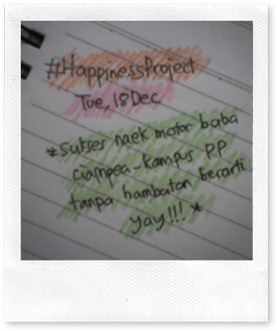 #HappinessProject
Tue, 18 Dec
*sukses naek motor baba
ciampea-kampus PP
tanpa hambatan berarti
yay!!! *